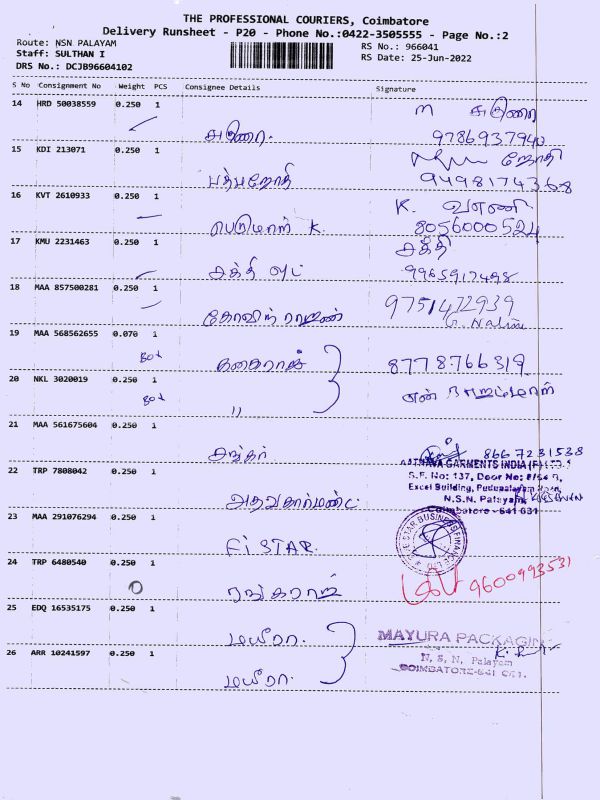 THE PROFESSIONAL COURIERS, Coimbatore
Delivery Runsheet - P20 - Phone No.:0422-3505555 - Page No.:2
Route: NSN PALAYAM
RS No.: 966041
Staff: SULTHAN I
RS Date: 25-Jun-2022
DRS No.: DCJB96604102
S No Consignment No Weight PCS Consignee Details Signature
14 HRD 50038559 0.250 1
அருணை. 9786937940
15 KDI 213071 0.250 1 ஜோதி
பத்மஜோதி 9498174368
16 KVT 2610933 0.250 1 K. வாணி
பெருமாள் K. 8056000524
17 KMU 2231463 0.250 1 சக்தி
சக்தி 9965917498
18 MAA 857500281 0.250 1 9751472939
கோவிந்தராஜன் G. Nalini
19 MAA 568562655 0.070 1
Box 8778766319
20 NKL 3020019 0.250 1
Box "
21 MAA 561675604 0.250 1
சங்கர் 8667231538
22 TRP 7808042 0.250 1
AATHAVA GARMENTS INDIA (P) LTD.,
S.F. No: 137, Door No:
Excel Building, Pudupalayam Road,
N.S.N. Palayam
Coimbatore - 641 031
23 MAA 291076294 0.250 1
FI STAR.
FIVE STAR BUSINESS FINANCE LTD
24 TRP 6480540 0.250 1
ரங்கராஜ் 9600993531
25 EDQ 16535175 0.250 1
மயூரா. MAYURA PACKAGING
26 ARR 10241597 0.250 1 N. S. N. Palayam
மயூரா. COIMBATORE-641